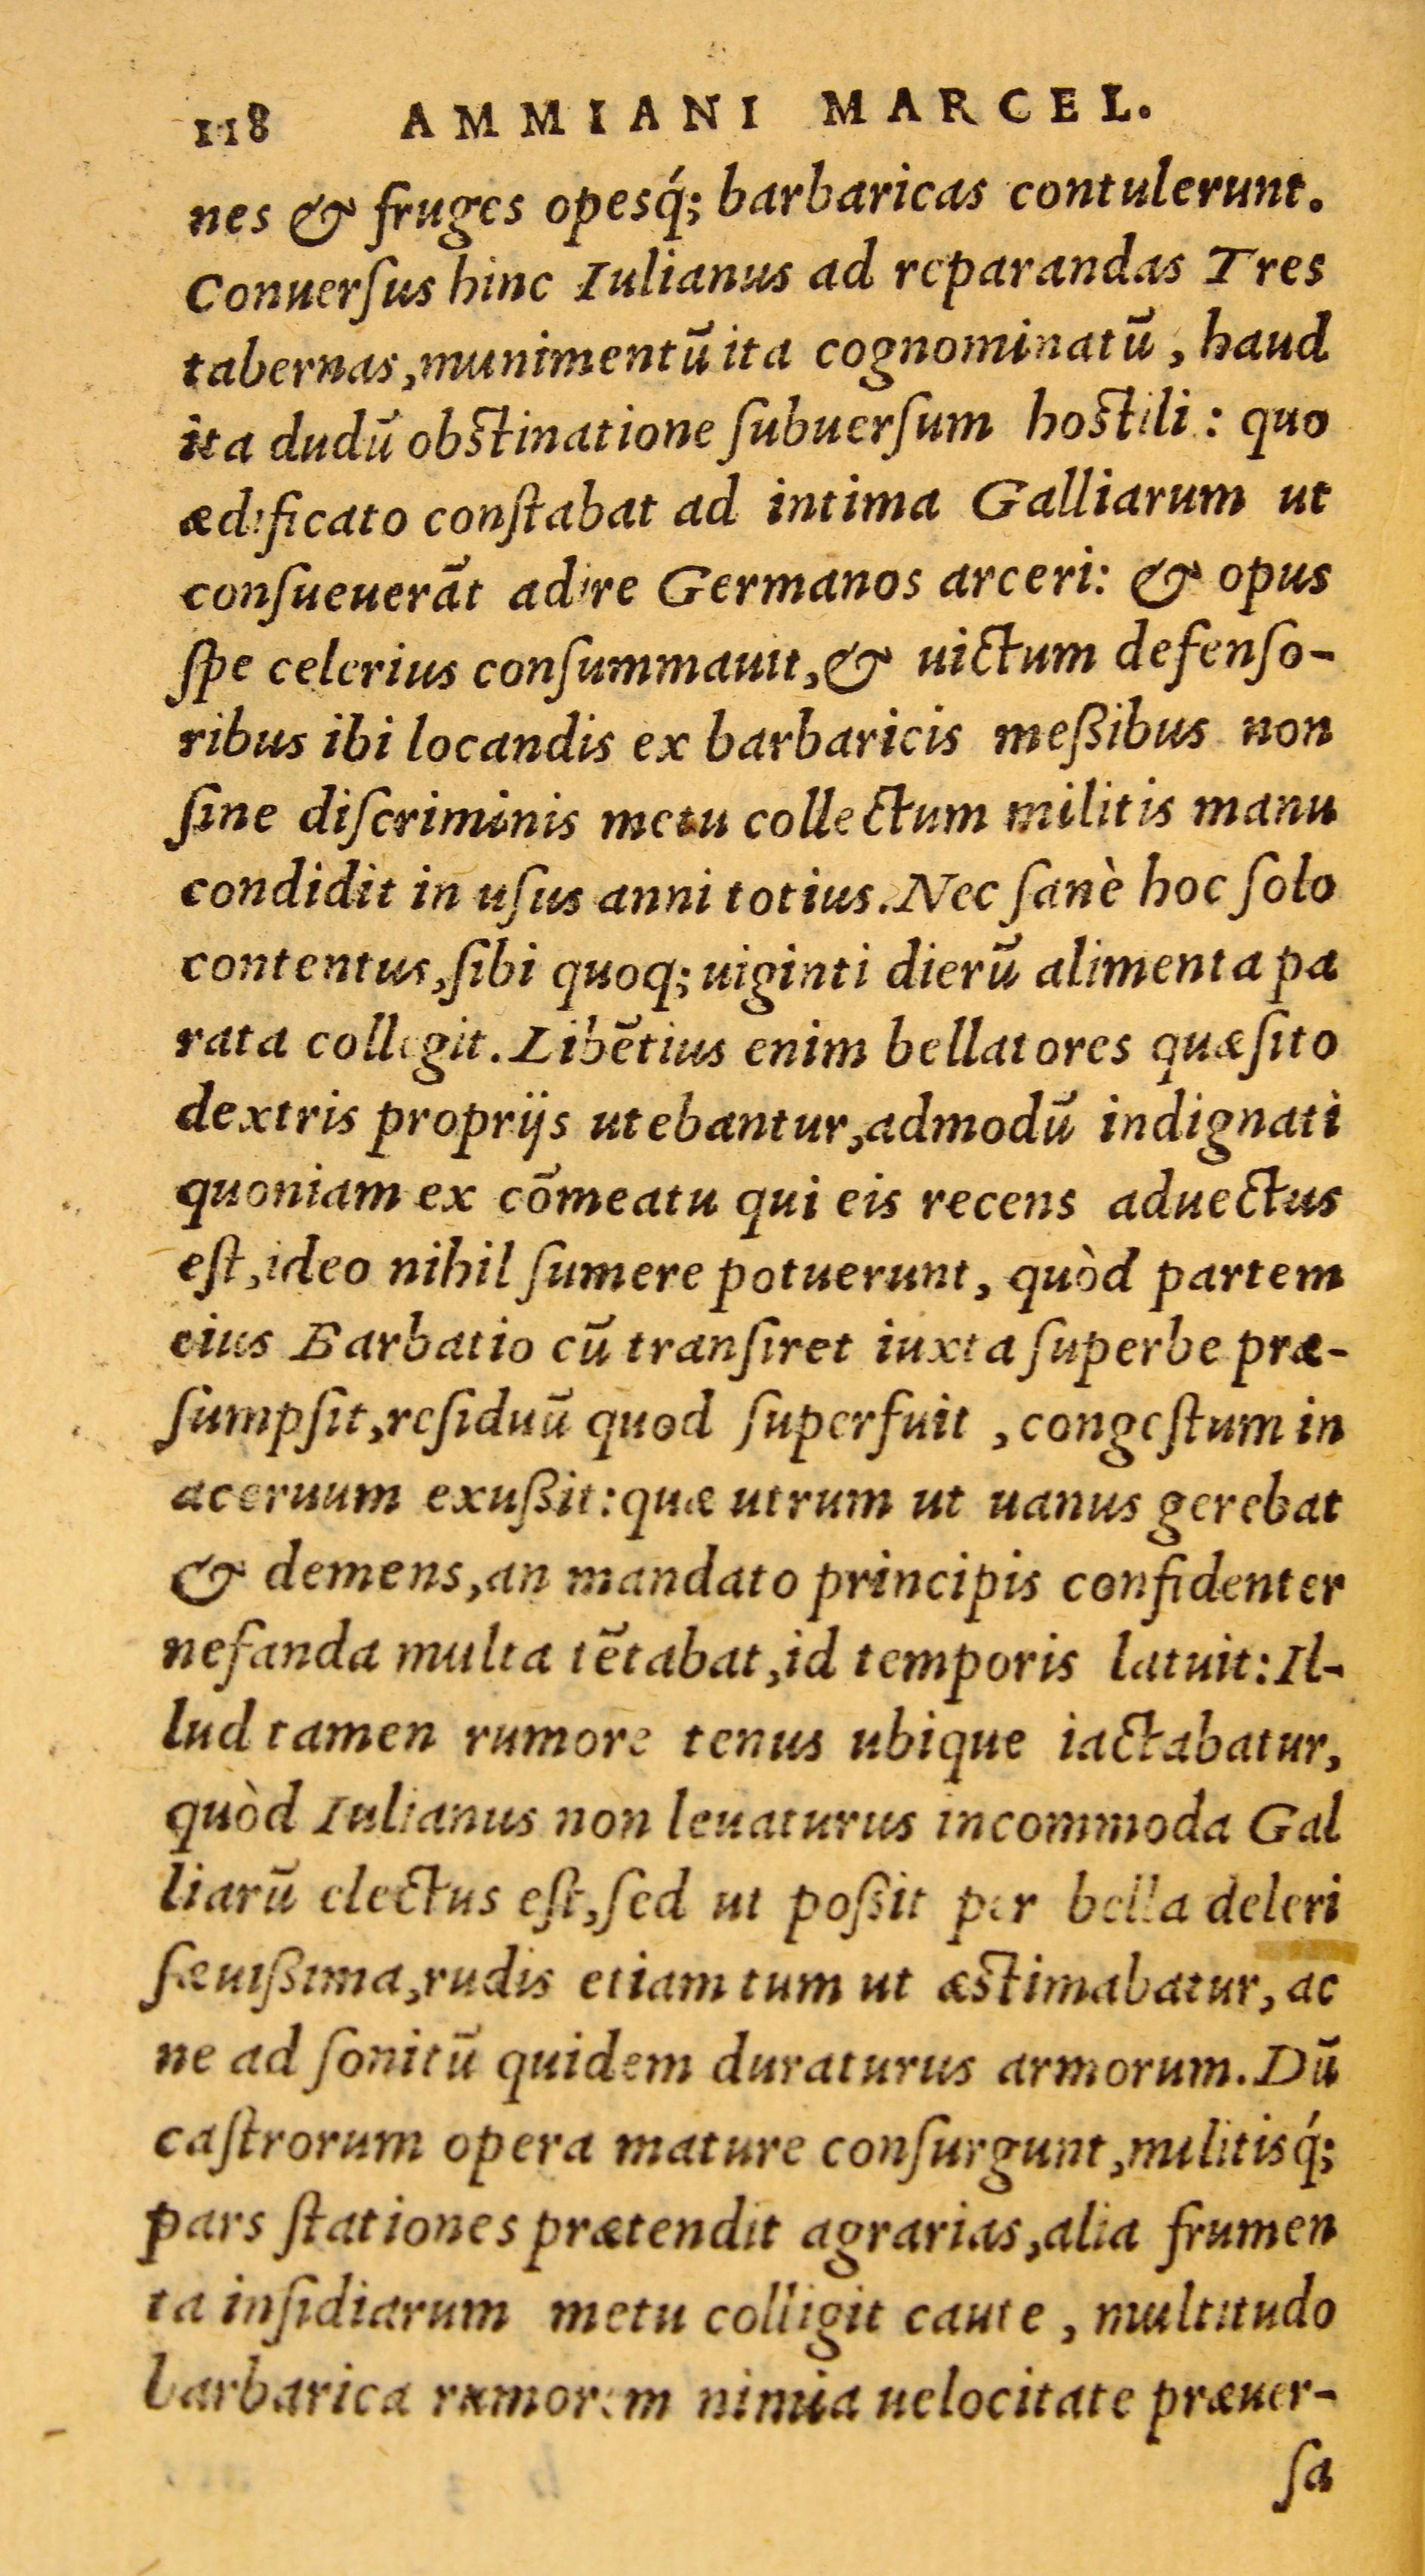 118 AMMIANI MARCEL.
nes & fruges opesq́; barbaricas contulerunt.
Conuerſus hinc Iulianus ad reparandas Tres
tabernas, munimentū ita cognominatū, haud
ita dudū obſtinatione ſubuerſum hoſtili: quo
ædificato conſtabat ad intima Galliarum ut
conſueuerāt adire Germanos arceri: & opus
ſpe celerius conſummauit, & uictum defenſo-
ribus ibi locandis ex barbaricis meßibus non
ſine diſcriminis metu collectum militis manu
condidit in uſus anni totius. Nec ſanè hoc ſolo
contentus, ſibi quoq; uiginti dierū alimenta pa
rata collegit. Libētius enim bellatores quæſito
dextris proprijs utebantur, admodū indignati
quoniam ex cōmeatu qui eis recens aduectus
eſt, ideo nihil ſumere potuerunt, quòd partem
eius Barbatio cū tranſiret iuxta ſuperbe præ-
ſumpſit, reſiduū quod ſuperfuit, congeſtum in
aceruum exußit: quæ utrum ut uanus gerebat
& demens, an mandato principis confidenter
nefanda multa tētabat, id temporis latuit: Il-
lud tamen rumore tenus ubique iactabatur,
quòd Iulianus non leuaturus incommoda Gal
liarū electus eſt, ſed ut poßit per bella deleri
ſæuißima, rudis etiam tum ut æſtimabatur, ac
ne ad ſonitū quidem duraturus armorum. Dū
caſtrorum opera mature conſurgunt, militisq́;
pars ſtationes prætendit agrarias, alia frumen
ta inſidiarum metu colligit caute, multitudo
barbarica rumorem nimia uelocitate præuer-
ſa